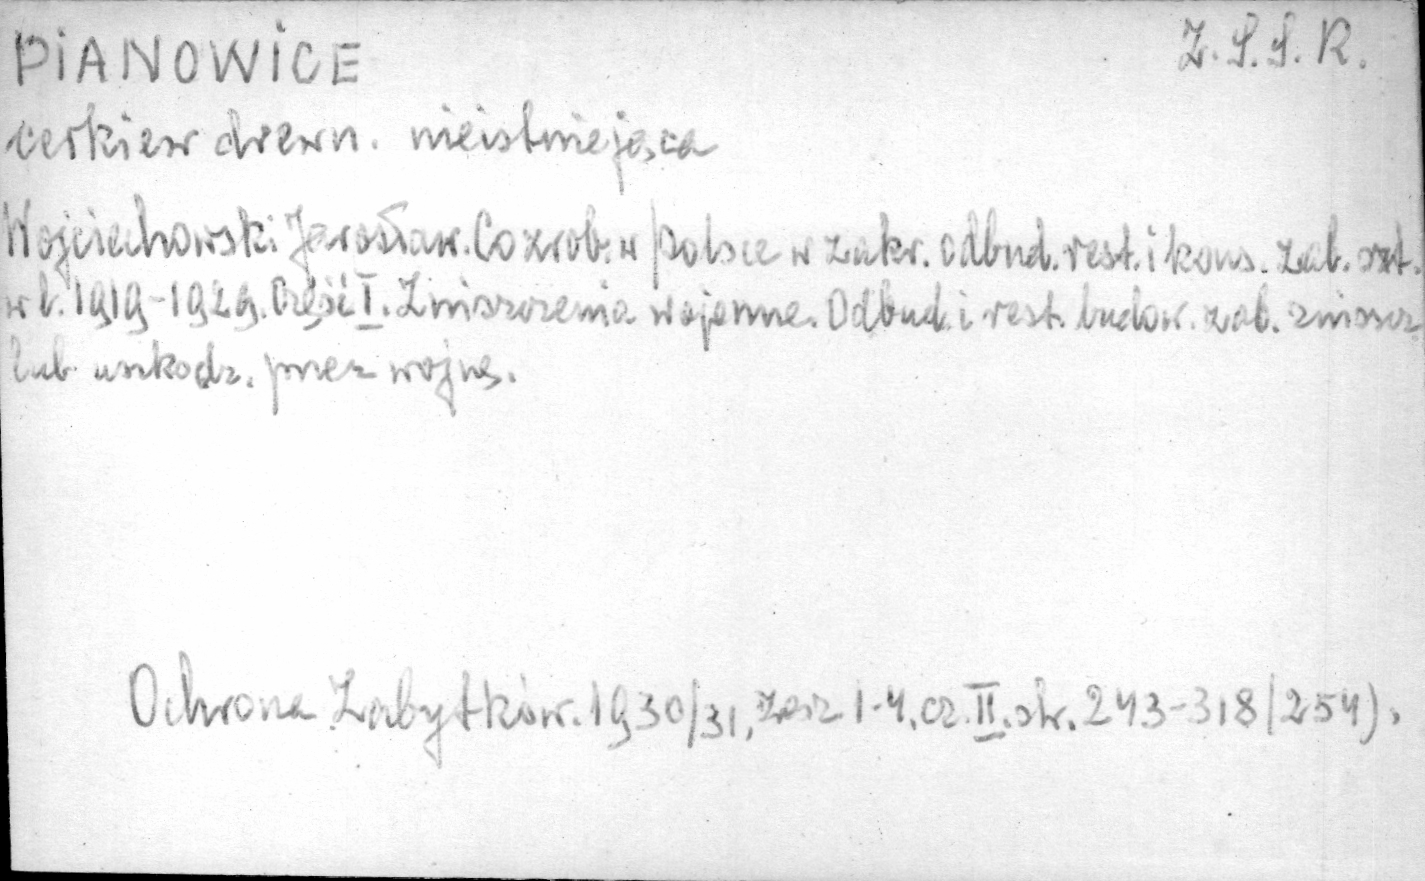 PIANOWICE Z.S.S.R.
cerkiew drewn. nieistniejąca
Wojciechowski Jarosław. Co zrob. w Polsce w zakr. odbud. rest. i kons. zab. szt.
w l. 1919-1929. Część I. Zniszczenia wojenne. Odbud. i rest. budow. zab. zniszcz.
lub uszkodz. przez wojnę.
Ochrona Zabytków. 1930/31, zesz 1-4, cz. II. str. 243-318/254).